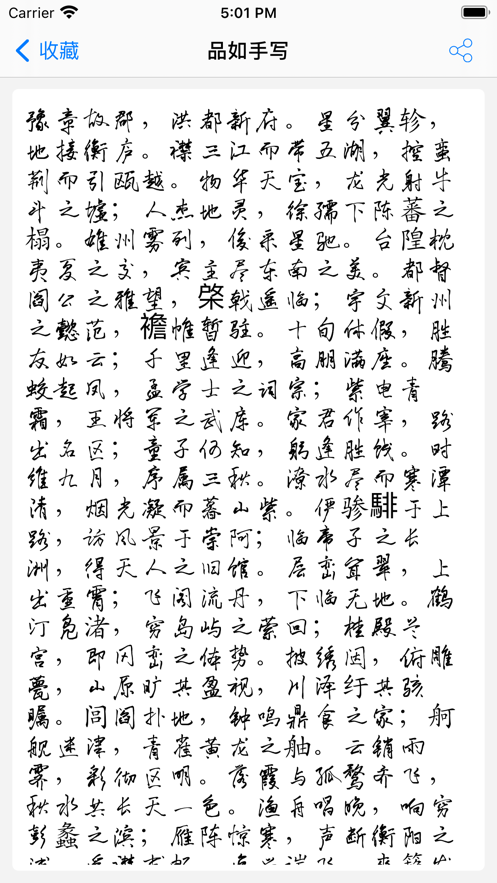 Carrier 5:01 PM
收藏 品如手写
豫章故郡，洪都新府。星分翼轸，
地接衡庐。襟三江而带五湖，控蛮
荆而引瓯越。物华天宝，龙光射牛
斗之墟；人杰地灵，徐孺下陈蕃之
榻。雄州雾列，俊采星驰。台隍枕
夷夏之交，宾主尽东南之美。都督
阎公之雅望，棨戟遥临；宇文新州
之懿范，襜帷暂驻。十旬休假，胜
友如云；千里逢迎，高朋满座。腾
蛟起凤，孟学士之词宗；紫电青
霜，王将军之武库。家君作宰，路
出名区；童子何知，躬逢胜饯。时
维九月，序属三秋。潦水尽而寒潭
清，烟光凝而暮山紫。俨骖騑于上
路，访风景于崇阿；临帝子之长
洲，得天人之旧馆。层峦耸翠，上
出重霄；飞阁流丹，下临无地。鹤
汀凫渚，穷岛屿之萦回；桂殿兰
宫，即冈峦之体势。披绣闼，俯雕
甍，山原旷其盈视，川泽纡其骇
瞩。闾阎扑地，钟鸣鼎食之家；舸
舰迷津，青雀黄龙之舳。云销雨
霁，彩彻区明。落霞与孤鹜齐飞，
秋水共长天一色。渔舟唱晚，响穷
彭蠡之滨；雁阵惊寒，声断衡阳之